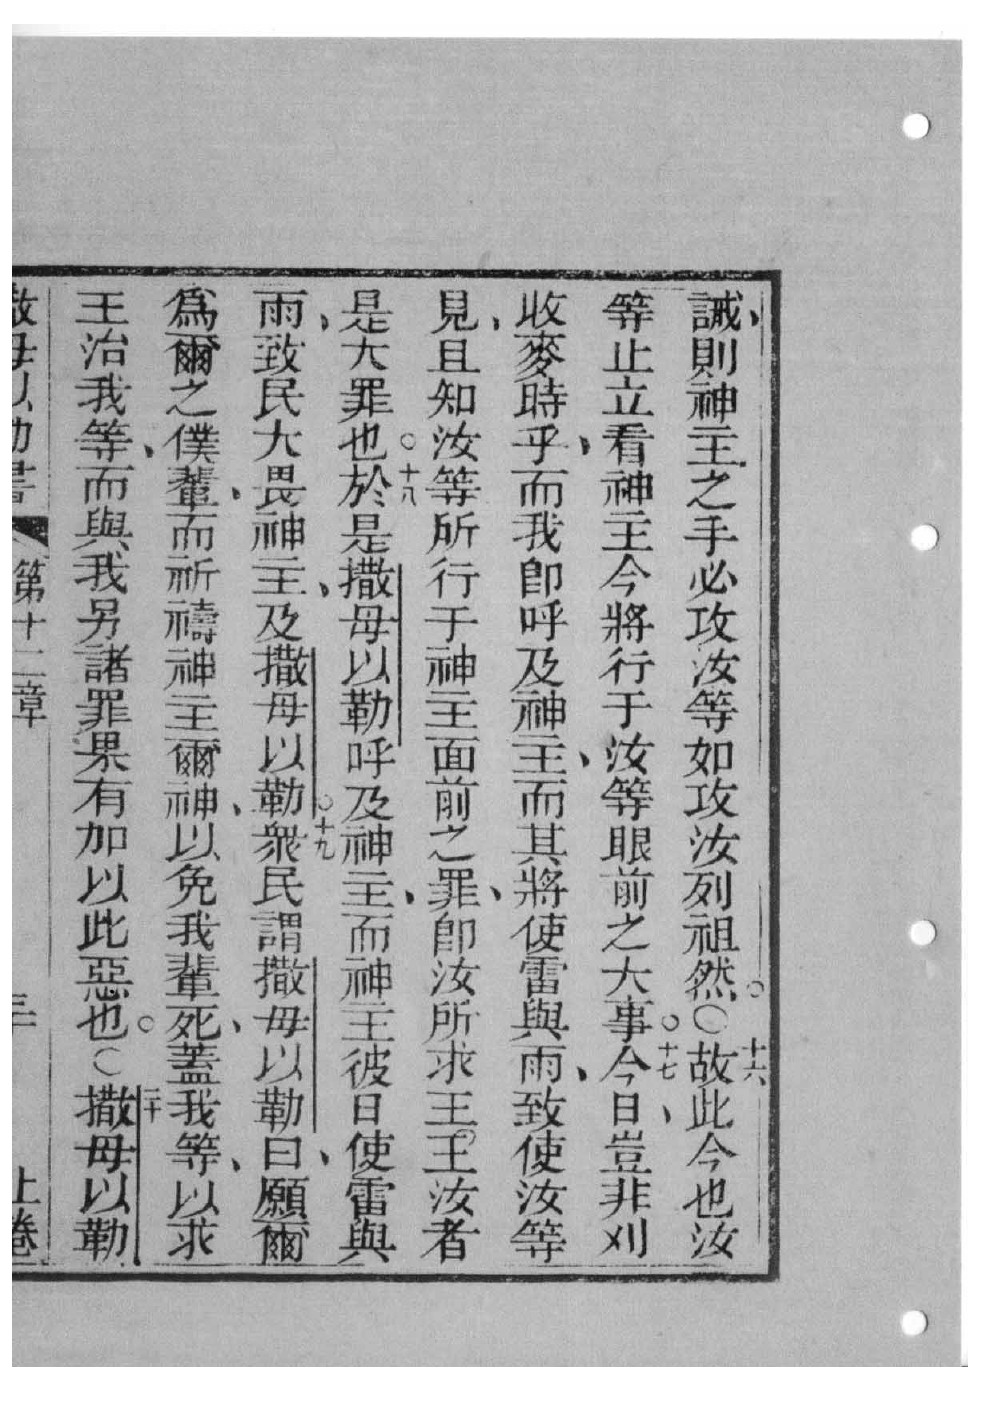 誡、則神主之手必攻汝等如攻汝列祖然。○十六故此今也汝
等止立看神主今將行于汝等眼前之大事。十七今日、豈非刈
收麥時乎、而我卽呼及神主、而其將使雷與雨、致使汝等
見、且知汝等所行于神主面前之罪、卽汝所求王。王汝者
是大罪也。十八於是撒母以勒呼及神主、而神主彼日使雷與
雨、致民大畏神主、及撒母以勒。十九衆民謂撒母以勒曰、願爾
爲爾之僕輩、而祈禱神主爾神、以免我輩死、蓋我等、以求
王治我等、而與我另諸罪果有加以此惡也。○二十撒母以勒
撒母以勒書 第十二章 三 上卷